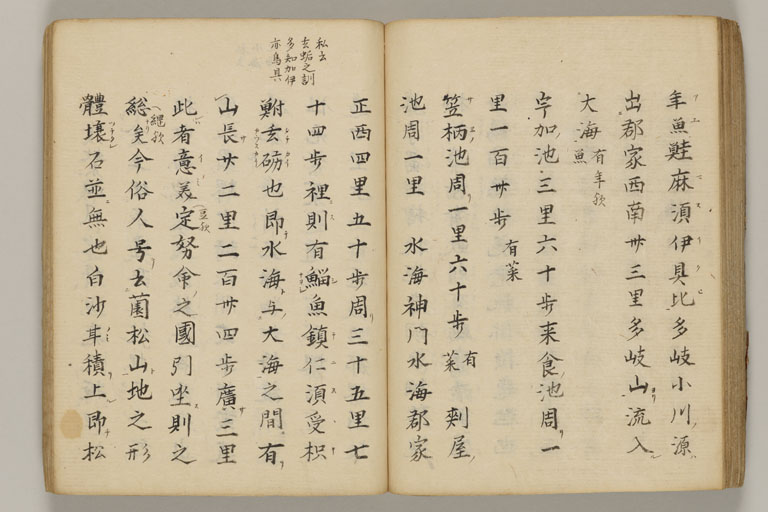 年魚鮭麻須伊具比多岐小川源
出郡家西南卅三里多岐山流入
大海有年魚欤
宇加池三里六十歩来食池周一
里一百卅歩有菜
笠柄池周一里六十歩有菜刺屋
池周一里 水海神門水海郡家
正西四里五十歩周三十五里七
十四歩裡則有鯔魚鎮仁須受枳
鮒玄砺也即水海与大海之間有
山長廿二里二百卅四歩廣三里
此者意美定努命之國引坐則之
総矣今俗人号云薗松山地之形
體壤石並無也白沙耳積上即松
私云
玄蛎之訓
多知加伊
亦鳥具
豆欤
継欤